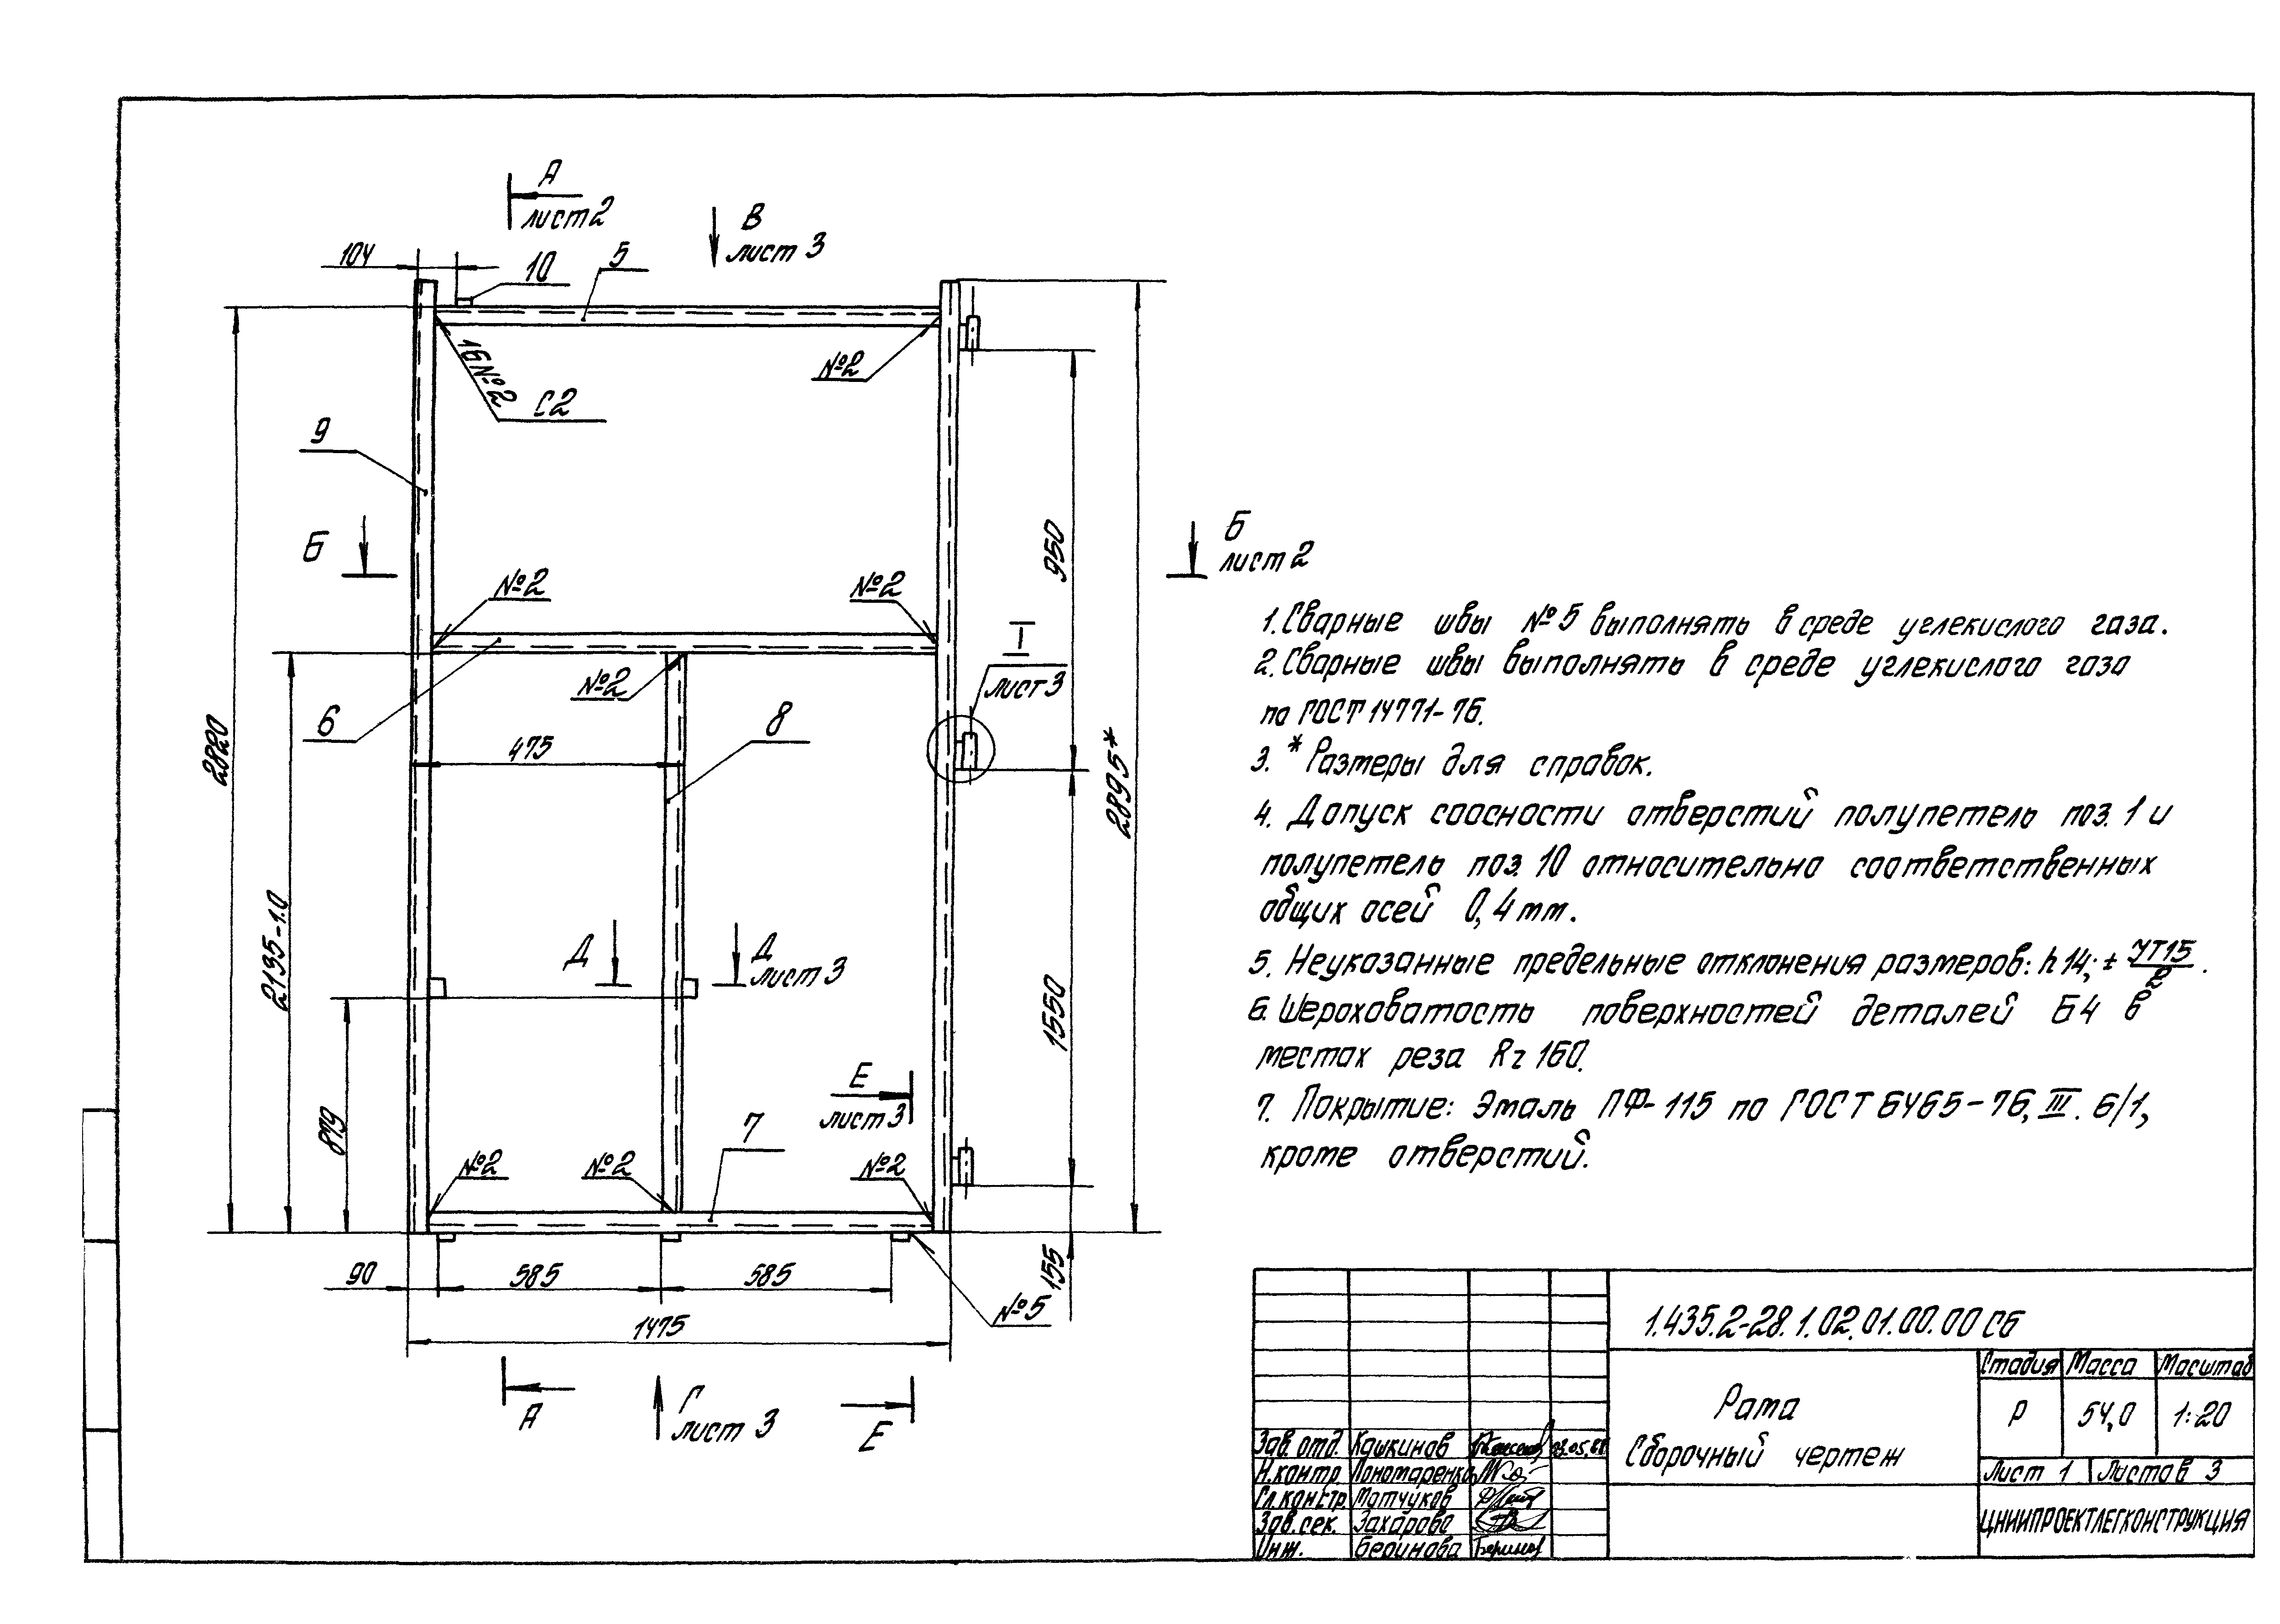 А
лист 2
В
лист 3
104
10
5
16 №2
С2
№2
9
Б
Б
лист 2
№2
№2
950
I
лист 3
№2
6
8
475
2820
2895*
2135-1.0
Д
Д
лист 3
879
1550
Е
лист 3
7
№2
№2
№2
90
585
585
155
№5
1475
А
Г
лист 3
Е
1. Сварные швы №5 выполнять в среде углекислого газа.
2. Сварные швы выполнять в среде углекислого газа
по ГОСТ 14771-76.
3. * Размеры для справок.
4. Допуск соосности отверстий полупетель поз. 1 и
полупетель поз. 10 относительно соответственных
общих осей 0,4 мм.
5. Неуказанные предельные отклонения размеров: h14; ± УТ15/2.
6. Шероховатость поверхностей деталей БЧ в
местах реза Rz 160.
7. Покрытие: Эмаль ПФ-115 по ГОСТ 6465-76, III. 6/1,
кроме отверстий.
1.435.2-28.1.02.01.00.00 СБ
Рама
Сборочный чертеж
Стадия Масса Масштаб
Р 54,0 1:20
Лист 1 Листов 3
ЦНИИПРОЕКТЛЕГКОНСТРУКЦИЯ
Зав. отд. Кашкинов
Н. контр. Пономаренко
Гл. констр. Матчуков
Зав. сек. Захарова
Инж. Беринова